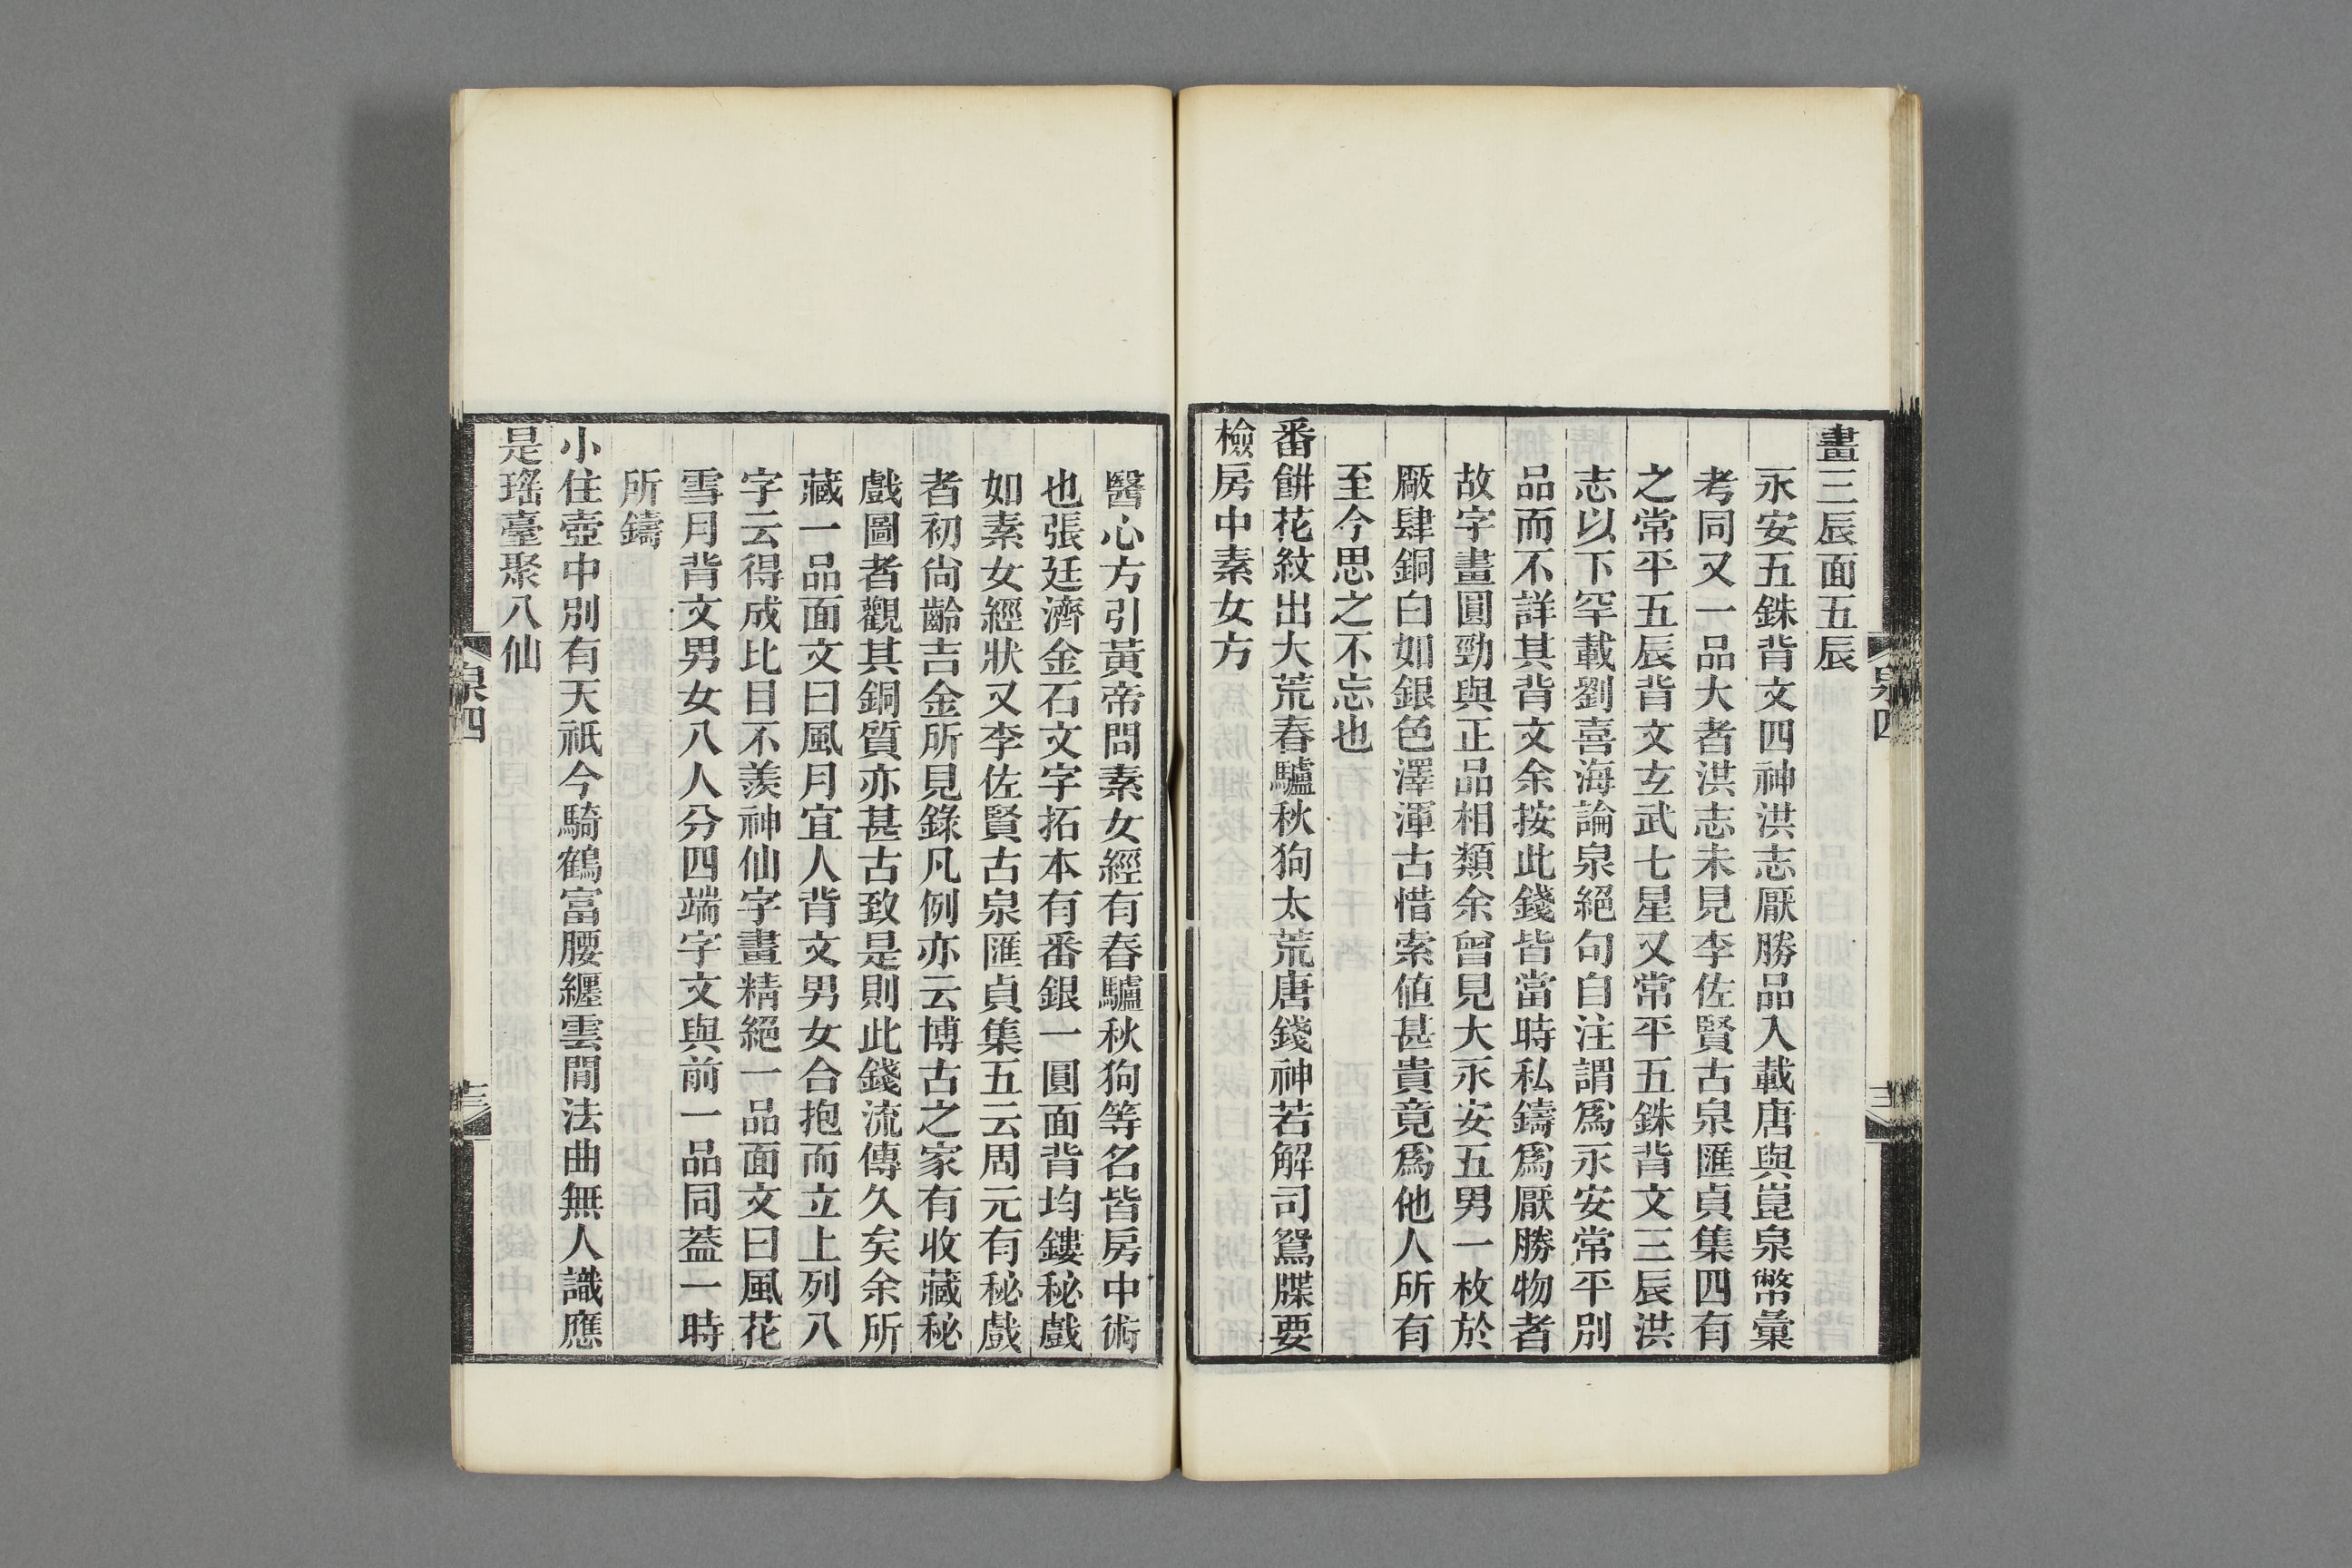 畫三辰面五辰
永安五銖背文四神洪志厭勝品入載唐與崑泉幣彙
考同又一品大者洪志未見李佐賢古泉匯貞集四有
之常平五辰背文玄武七星又常平五銖背文三辰洪
志以下罕載劉喜海論泉絕句自注謂爲永安常平別
品而不詳其背文余按此錢皆當時私鑄爲厭勝物者
故字畫圓勁與正品相類余曾見大永安五男一枚於
厰肆銅白如銀色澤渾古惜索值甚貴竟爲他人所有
至今思之不忘也
番餅花紋出大荒春驢秋狗太荒唐錢神若解司鴛牒要
檢房中素女方
泉四
醫心方引黃帝問素女經有春驢秋狗等名皆房中術
也張廷濟金石文字拓本有番銀一圓面背均鏤秘戲
如素女經狀又李佐賢古泉匯貞集五云周元有秘戲
者初尙齡吉金所見錄凡例亦云博古之家有收藏秘
戲圖者觀其銅質亦甚古致是則此錢流傳久矣余所
藏一品面文曰風月宜人背文男女合抱而立上列八
字云得成比目不羨神仙字畫精絕一品面文曰風花
雪月背文男女八人分四端字文與前一品同蓋一時
所鑄
小住壺中別有天祇今騎鶴富腰纏雲閒法曲無人識應
是瑤臺聚八仙
泉四